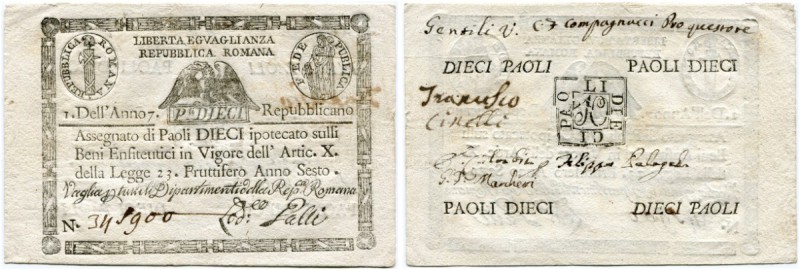 LIBERTA EGVAGLIANZA
REPUBBLICA ROMANA
REPUBBLICA ROMANA
FEDE PUBLICA
Pli DIECI
1. Dell'Anno 7. Repubblicano
Assegnato di Paoli DIECI ipotecato sulli
Beni Enfiteutici in Vigore dell' Artic. X.
della Legge 23. Fruttifero Anno Sesto.
Vaglia p tutti i Dipartimenti della Repa Romana
N. 34 5900 Galli
Gentili V. Compagnucci Pro questore
DIECI PAOLI PAOLI DIECI
PAO LI DIE CI
Francesco
Cinelli
Filippo
PAOLI DIECI DIECI PAOLI